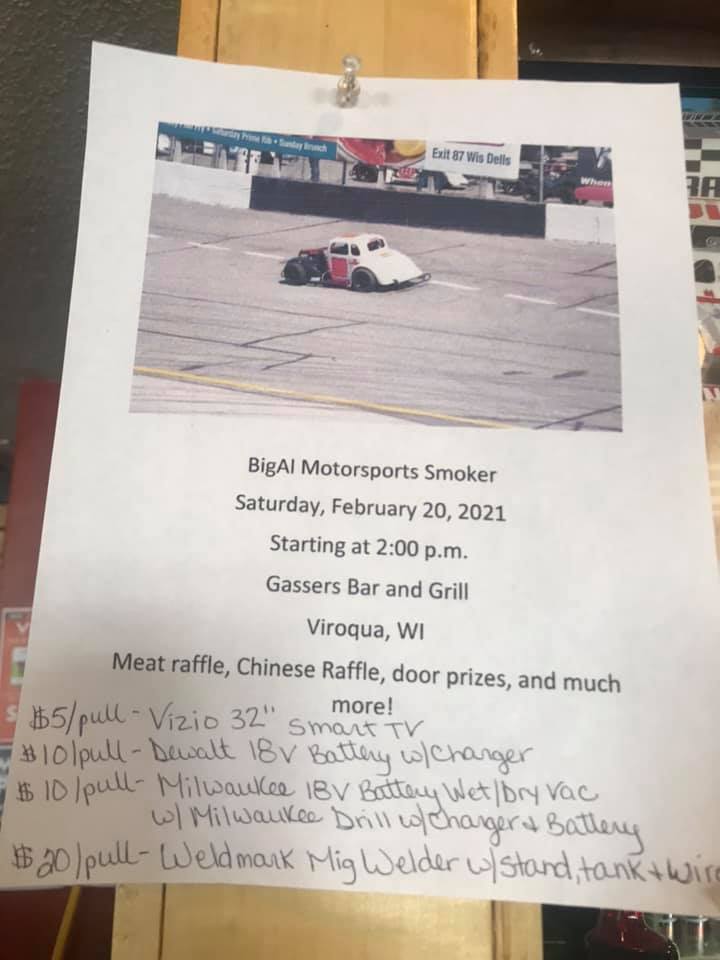 Saturday Prime Rib • Sunday Brunch
Exit 87 Wis Dells
When
BigAl Motorsports Smoker
Saturday, February 20, 2021
Starting at 2:00 p.m.
Gassers Bar and Grill
Viroqua, WI
Meat raffle, Chinese Raffle, door prizes, and much
more!
$5/pull - Vizio 32" Smart TV
$10/pull - Dewalt 18V Battery w/Charger
$10/pull - Milwaukee 18V Battery Wet/Dry Vac
w/ Milwaukee Drill w/Charger + Battery
$20/pull - Weldmark Mig Welder w/stand, tank + wire